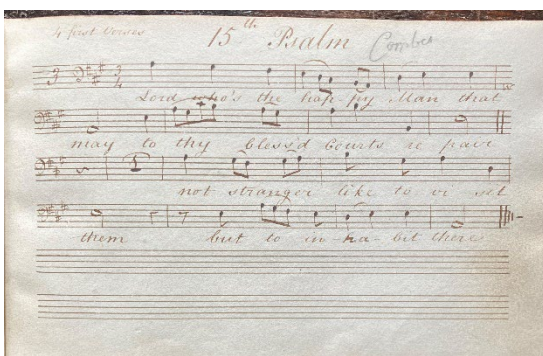 4 first Verses
15th Psalm Combes
3 3/4
Lord who's the hap-py Man that
may to thy bless'd Courts re pair
not stranger like to vi sit
them but to in-ha-bit there